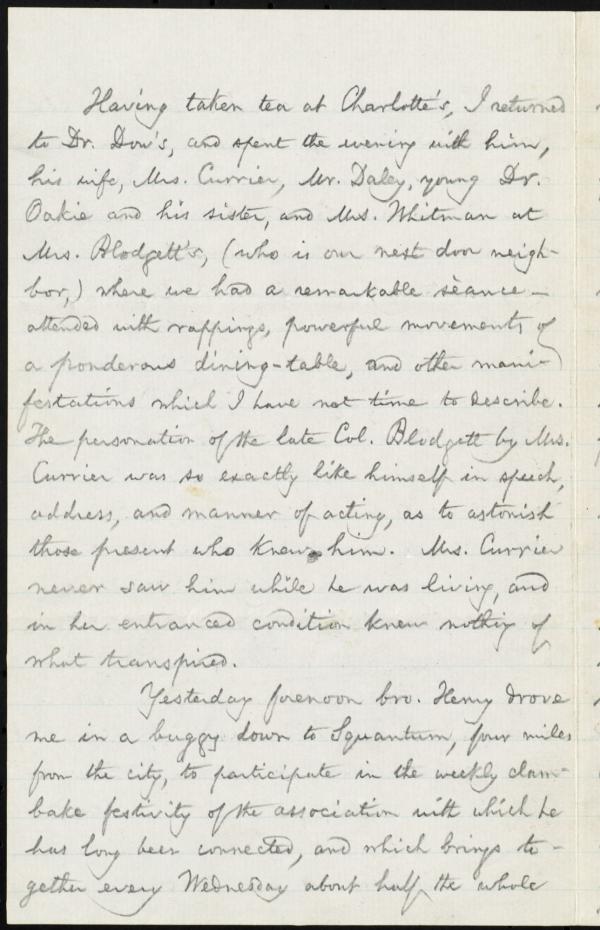 Having taken tea at Charlotte's, I returned
to Dr. Dow's, and spent the evening with him,
his wife, Mrs. Currier, Mr. Daley, young Dr.
Oakie and his sister, and Mrs. Whitman at
Mrs. Blodgett's, (who is our next door neigh-
bor,) where we had a remarkable sèance—
attended with rappings, powerful movements of
a ponderous dining-table, and other mani-
festations which I have not time to describe.
The personation of the late Col. Blodgett by Mrs.
Currier was so exactly like himself in speech,
address, and manner of acting, as to astonish
those present who knew him. Mrs. Currier
never saw him while he was living, and
in her entranced condition knew nothing of
what transpired.
Yesterday forenoon bro. Henry drove
me in a buggy down to Squantum, four miles
from the city, to participate in the weekly clam-
bake festivity of the association with which he
has long been connected, and which brings to-
gether every Wednesday about half the whole